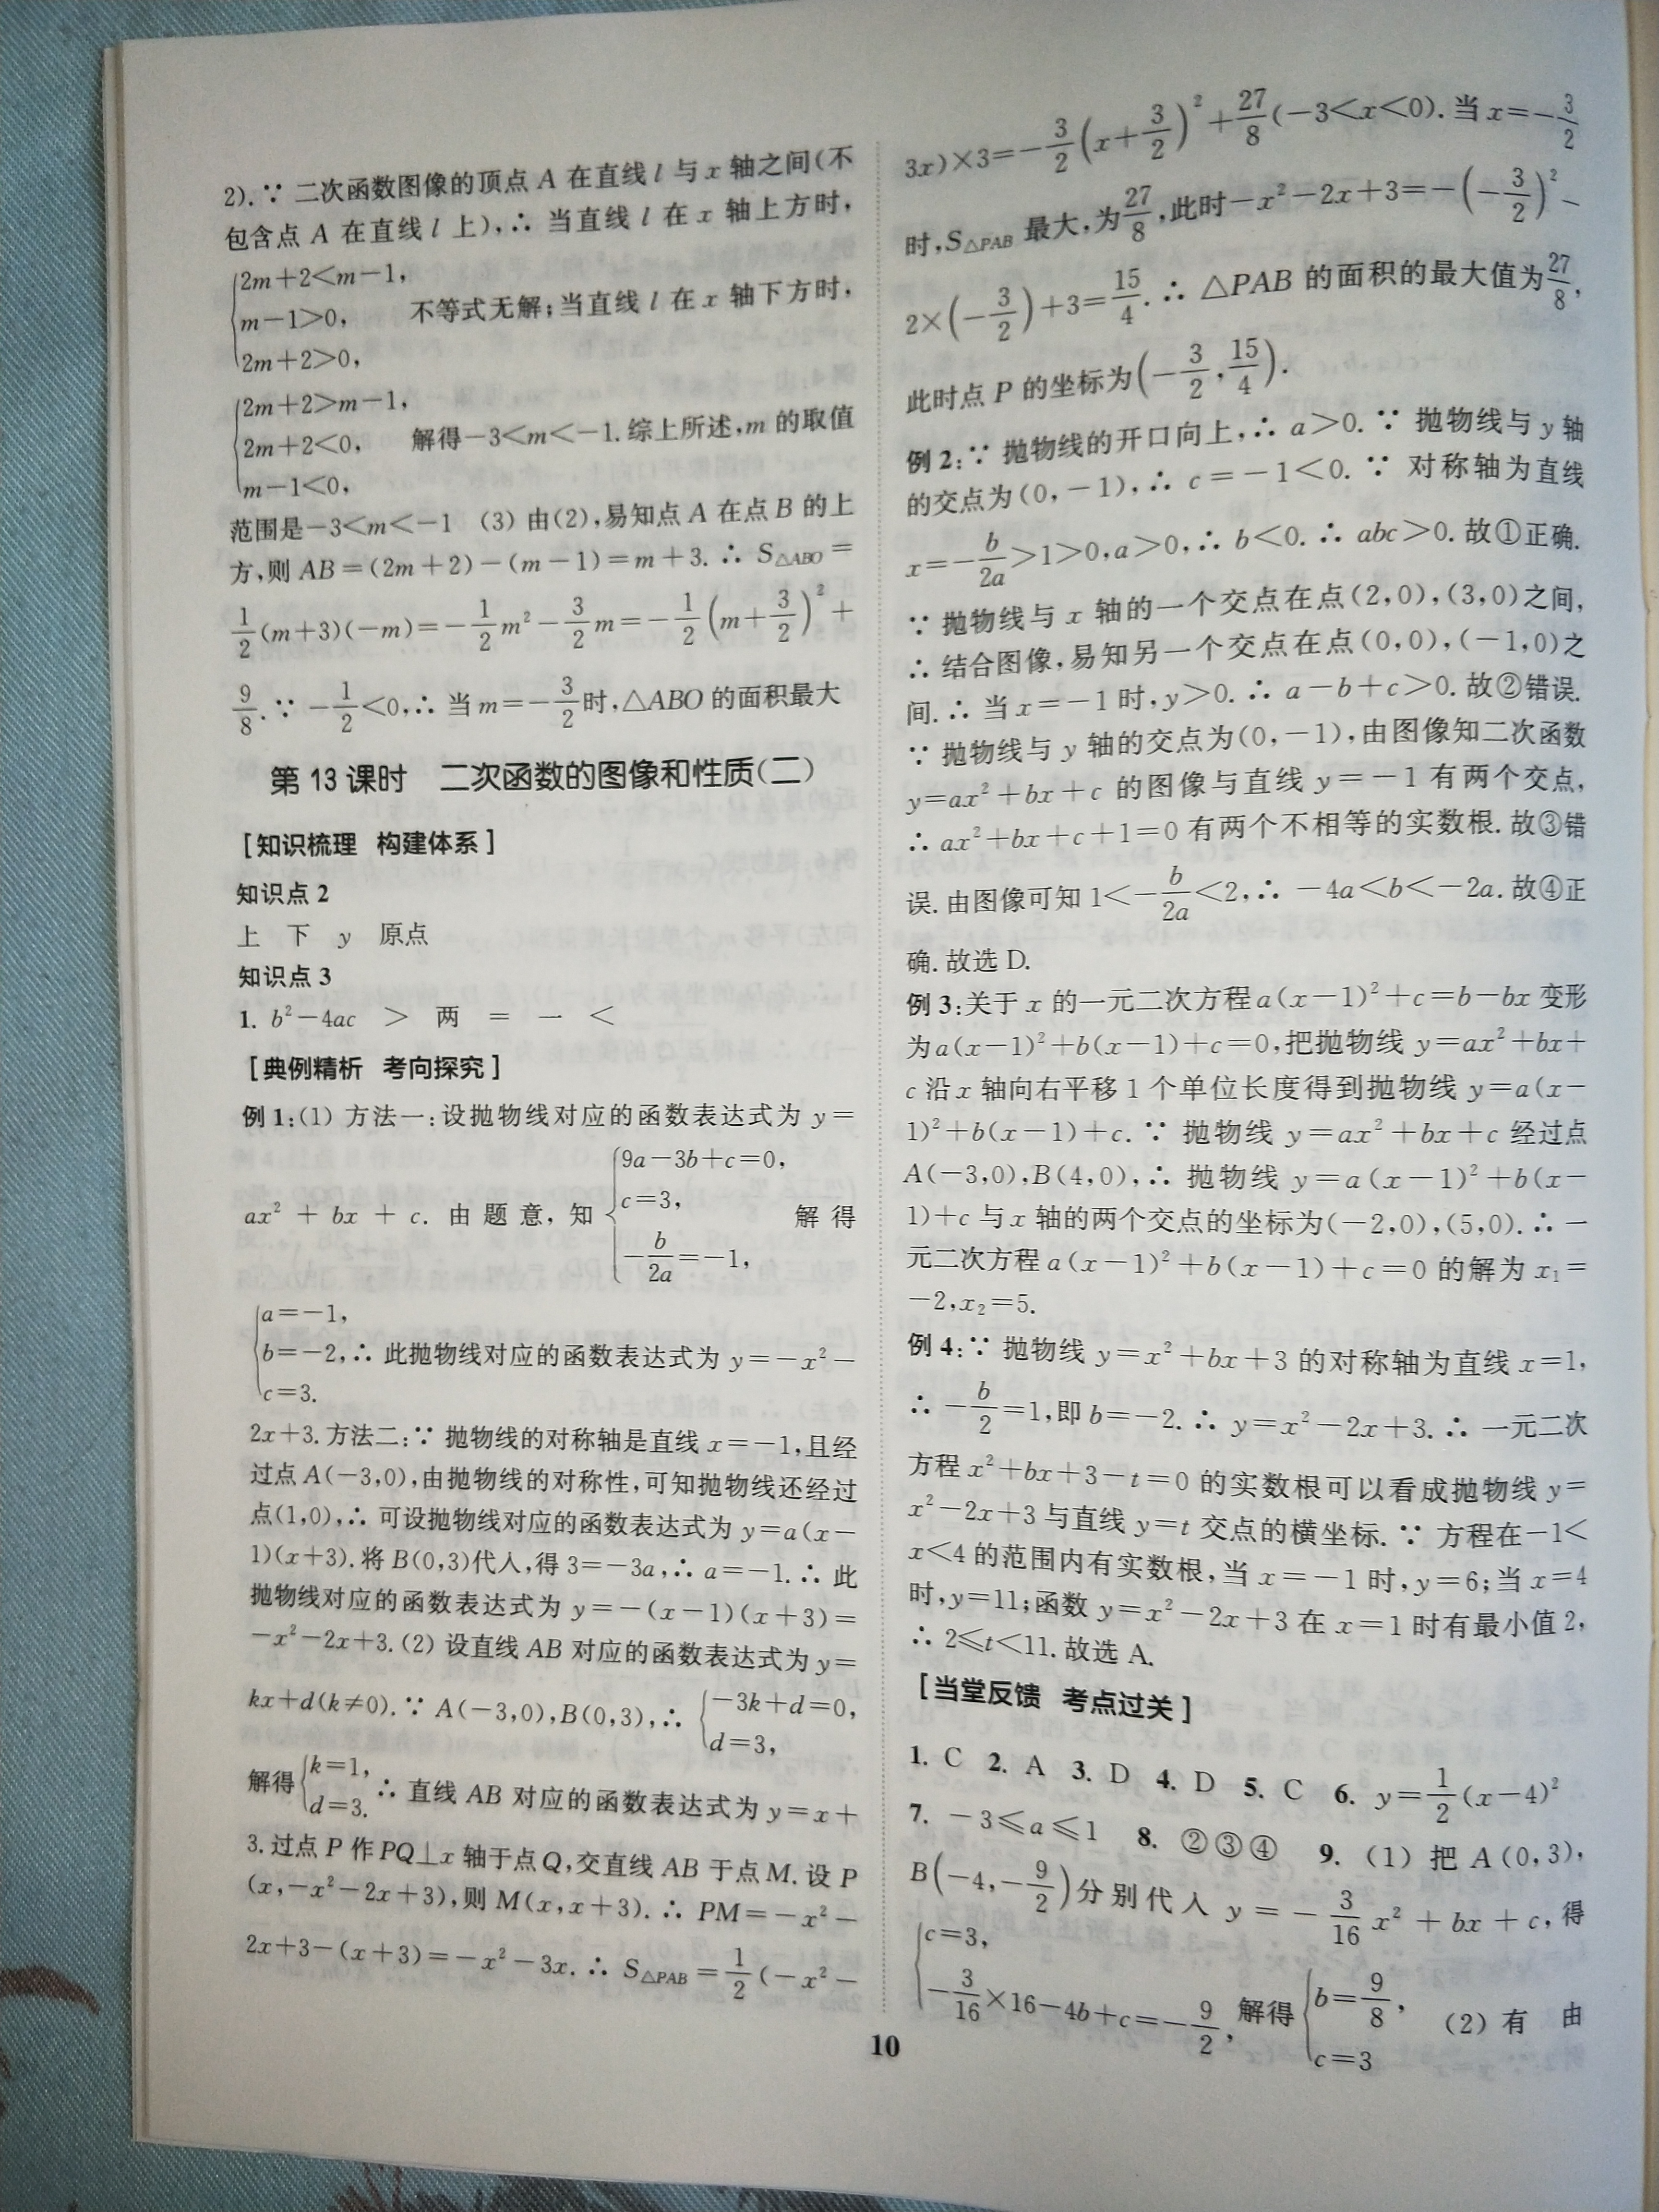 2).∵ 二次函数图像的顶点 A 在直线 l 与 x 轴之间(不
包含点 A 在直线 l 上),∴ 当直线 l 在 x 轴上方时,
{2m+2<m-1,
m-1>0,
2m+2>0,
不等式无解;当直线 l 在 x 轴下方时,
{2m+2>m-1,
2m+2<0,
m-1<0,
解得-3<m<-1.综上所述,m 的取值
范围是-3<m<-1 (3) 由(2),易知点 A 在点 B 的上
方,则 AB=(2m+2)-(m-1)=m+3.∴ S△ABO=
1/2(m+3)(-m)=-1/2m²-3/2m=-1/2(m+3/2)²+
9/8.∵ -1/2<0,∴ 当 m=-3/2时,△ABO 的面积最大
第 13 课时 二次函数的图像和性质(二)
[知识梳理 构建体系]
知识点 2
上 下 y 原点
知识点 3
1. b²-4ac > 两 = 一 <
[典例精析 考向探究]
例 1:(1) 方法一:设抛物线对应的函数表达式为 y=
ax²+bx+c. 由题意,知{9a-3b+c=0,
c=3,
-b/2a=-1,
解得
{a=-1,
b=-2,∴ 此抛物线对应的函数表达式为 y=-x²-
c=3.
2x+3.方法二:∵ 抛物线的对称轴是直线 x=-1,且经
过点 A(-3,0),由抛物线的对称性,可知抛物线还经过
点(1,0),∴ 可设抛物线对应的函数表达式为 y=a(x-
1)(x+3).将 B(0,3)代入,得 3=-3a,∴ a=-1.∴ 此
抛物线对应的函数表达式为 y=-(x-1)(x+3)=
-x²-2x+3.(2) 设直线 AB 对应的函数表达式为 y=
kx+d(k≠0).∵ A(-3,0),B(0,3),∴ {-3k+d=0,
d=3,
解得{k=1,
d=3.
∴ 直线 AB 对应的函数表达式为 y=x+
3.过点 P 作 PQ⊥x 轴于点 Q,交直线 AB 于点 M.设 P
(x,-x²-2x+3),则 M(x,x+3).∴ PM=-x²-
2x+3-(x+3)=-x²-3x.∴ S△PAB=1/2(-x²-
3x)×3=-3/2(x+3/2)²+27/8(-3<x<0).当 x=-3/2
时,S△PAB 最大,为27/8,此时-x²-2x+3=-(-3/2)²-
2×(-3/2)+3=15/4.∴ △PAB 的面积的最大值为27/8,
此时点 P 的坐标为(-3/2,15/4).
例 2:∵ 抛物线的开口向上,∴ a>0.∵ 抛物线与 y 轴
的交点为(0,-1),∴ c=-1<0.∵ 对称轴为直线
x=-b/2a>1>0,a>0,∴ b<0.∴ abc>0.故①正确.
∵ 抛物线与 x 轴的一个交点在点(2,0),(3,0)之间,
∴ 结合图像,易知另一个交点在点(0,0),(-1,0)之
间.∴ 当 x=-1 时,y>0.∴ a-b+c>0.故②错误.
∵ 抛物线与 y 轴的交点为(0,-1),由图像知二次函数
y=ax²+bx+c 的图像与直线 y=-1 有两个交点,
∴ ax²+bx+c+1=0 有两个不相等的实数根.故③错
误.由图像可知 1<-b/2a<2,∴ -4a<b<-2a.故④正
确.故选 D.
例 3:关于 x 的一元二次方程 a(x-1)²+c=b-bx 变形
为 a(x-1)²+b(x-1)+c=0,把抛物线 y=ax²+bx+
c 沿 x 轴向右平移 1 个单位长度得到抛物线 y=a(x-
1)²+b(x-1)+c.∵ 抛物线 y=ax²+bx+c 经过点
A(-3,0),B(4,0),∴ 抛物线 y=a(x-1)²+b(x-
1)+c 与 x 轴的两个交点的坐标为(-2,0),(5,0).∴ 一
元二次方程 a(x-1)²+b(x-1)+c=0 的解为 x₁=
-2,x₂=5.
例 4:∵ 抛物线 y=x²+bx+3 的对称轴为直线 x=1,
∴ -b/2=1,即 b=-2.∴ y=x²-2x+3.∴ 一元二次
方程 x²+bx+3-t=0 的实数根可以看成抛物线 y=
x²-2x+3 与直线 y=t 交点的横坐标.∵ 方程在-1<
x<4 的范围内有实数根,当 x=-1 时,y=6;当 x=4
时,y=11;函数 y=x²-2x+3 在 x=1 时有最小值 2,
∴ 2≤t<11.故选 A.
[当堂反馈 考点过关]
1. C 2. A 3. D 4. D 5. C 6. y=1/2(x-4)²
7. -3≤a≤1 8. ②③④ 9. (1) 把 A(0,3),
B(-4,-9/2)分别代入 y=-3/16x²+bx+c,得
{c=3,
-3/16×16-4b+c=-9/2,
解得{b=9/8,
c=3
(2) 有 由
10